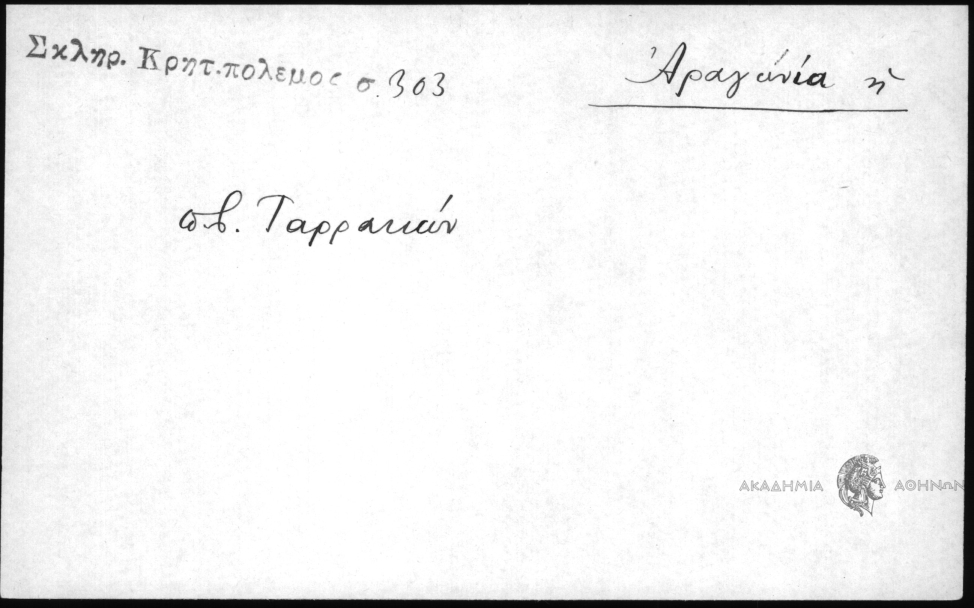 Σκληρ. Κρητ. πολεμος σ. 303
Ἀραγωνία ἡ
πβ. Ταρρακών
ΑΚΑΔΗΜΙΑ ΑΘΗΝΩΝ